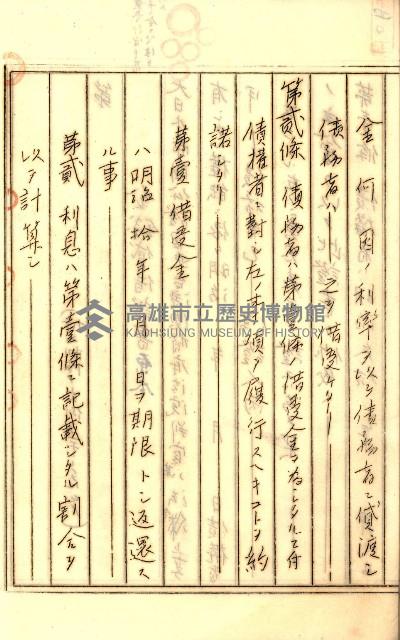 金 何圓ノ利率ヲ以テ債務者ニ貸渡シ
債務者ハ 之ヲ借受ケタリ
第貳條 債務者ハ第壹條ノ借受金ヲ為シタルニ付
債權者ニ對シ左ノ事項ヲ履行スヘキコトヲ約
諾シタリ
第壹 借受金
ハ明治拾 年 月 日ヲ期限トシ返還ス
ル事
第貳 利息ハ第壹條ニ記載シタル割合ヲ
以テ計算シ
高雄市立歷史博物館
KAOHSIUNG MUSEUM OF HISTORY